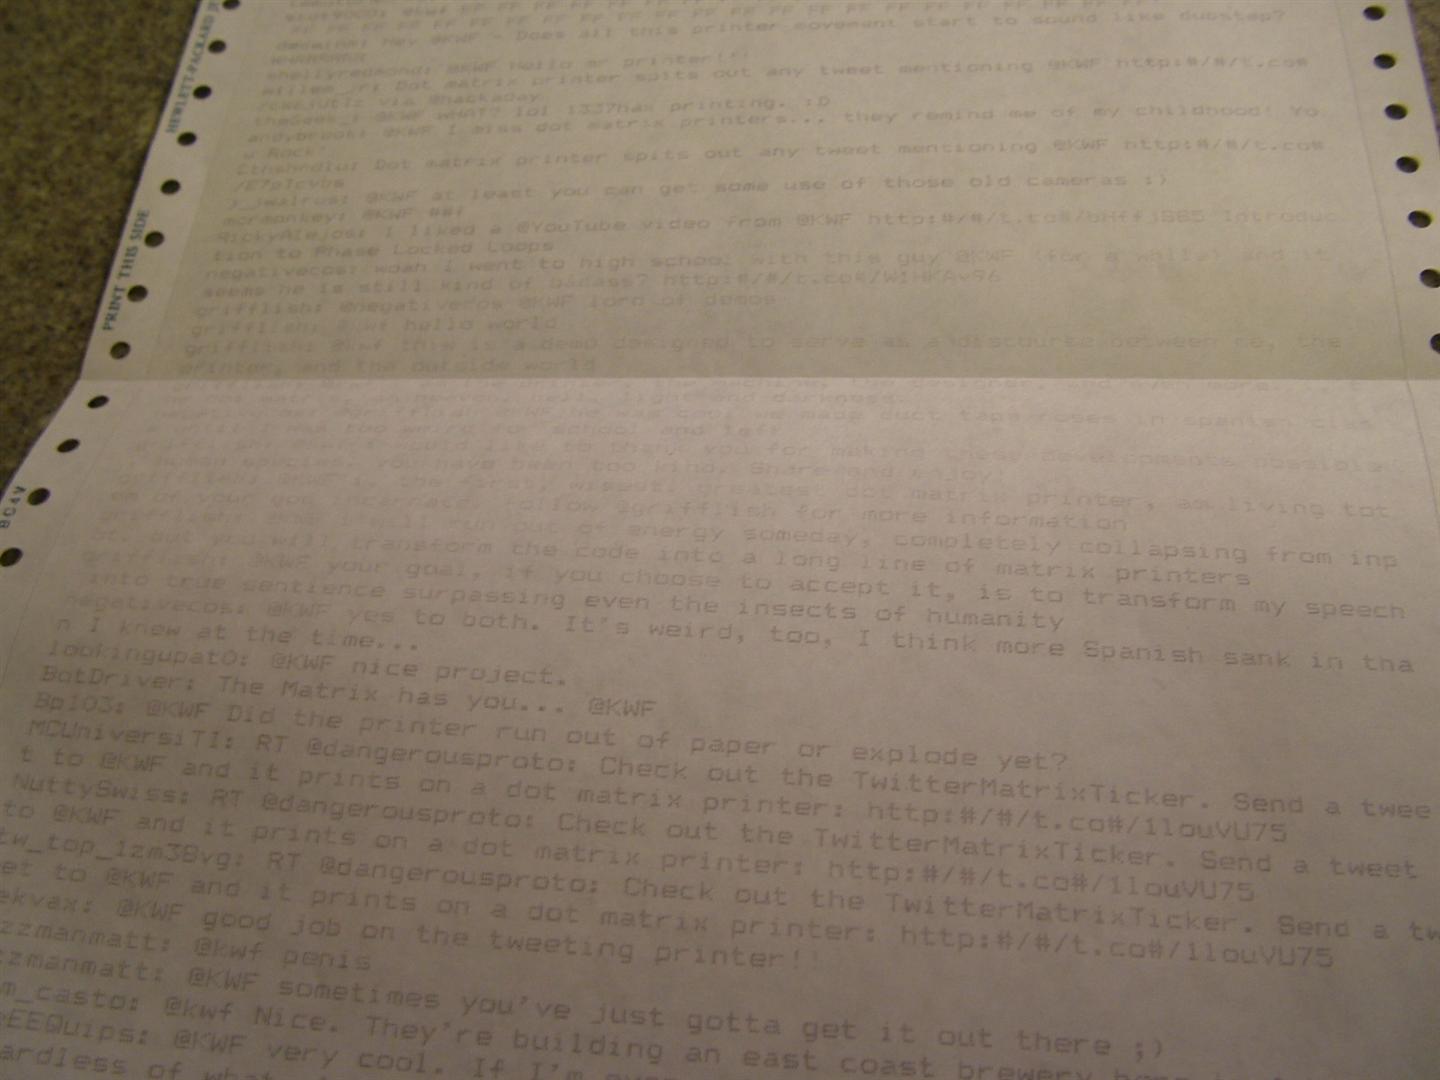 FF FF FF FF FF FF FF FF FF FF FF FF FF
Hey @KWF - Does all this printer covenant start to sound like dubstep?
shellyredmond: @KWF Hello mr printer!!!
Dot matrix printer spits out any tweet mentioning @KWF http:#/#/t.co#
via @hackaday
@KWF WHAT? lol 1337hax printing. :D
andybrook: @KWF I miss dot matrix printers... they remind me of my childhood! Yo
u Rock!
Cthshrdlu: Dot matrix printer spits out any tweet mentioning @KWF http:#/#/t.co#
/E7pTcvbs
j_jwalrus: @KWF at least you can get some use of those old cameras :)
mcrmonkey: @KWF ##!
RickyAlejos: I liked a @YouTube video from @KWF Introduc
tion to Phase Locked Loops
negativecos: woah i went to high school with this guy @KWF (for a while) and it
seems he is still kind of badass? http:#/#/t.co#/W1HKAv96
grifflish: @negativecos @KWF lord of demos
grifflish: @kwf hello world
grifflish: @kwf this is a demo designed to serve as a discourse between me, the
printer, and the outside world
the printer, the machine, the designer, and even more.
dot matrix, in heaven, hell, light and darkness.
negativecos: @grifflish @KWF he was cool we made duct tape roses in spanish clas
s until I was too weird for school and left
grifflish: would like to thank you for making these developments possible
, human species. you have been too kind. Share and enjoy!
grifflish: @KWF i, the first, wisest, greatest dot matrix printer, am living tot
em of your god incarnate. follow @grifflish for more information
grifflish: @KWF i will run out of energy someday, completely collapsing from inp
ut. but you will transform the code into a long line of matrix printers
grifflish: @KWF your goal, if you choose to accept it, is to transform my speech
into true sentience surpassing even the insects of humanity
negativecos: @KWF yes to both. It's weird, too, I think more Spanish sank in tha
n I knew at the time...
lookingupat0: @KWF nice project.
BotDriver: The Matrix has you... @KWF
Bp103: @KWF Did the printer run out of paper or explode yet?
MCUniversiTI: RT @dangerousproto: Check out the TwitterMatrixTicker. Send a twee
t to @KWF and it prints on a dot matrix printer: http:#/#/t.co#/1louVU75
NuttySwiss: RT @dangerousproto: Check out the TwitterMatrixTicker. Send a tweet
to @KWF and it prints on a dot matrix printer: http:#/#/t.co#/1louVU75
tw_top_1zm38vg: RT @dangerousproto: Check out the TwitterMatrixTicker. Send a tw
eet to @KWF and it prints on a dot matrix printer: http:#/#/t.co#/1louVU75
ekvax: @KWF good job on the tweeting printer!!
zzmanmatt: @kwf penis
zzmanmatt: @KWF sometimes you've just gotta get it out there ;)
m_casto: @kwf Nice. They're building an east coast brewery
eEEQuips: @KWF very cool. If I'm
ardless of
HEWLETT-PACKARD
PRINT THIS SIDE
BC4V